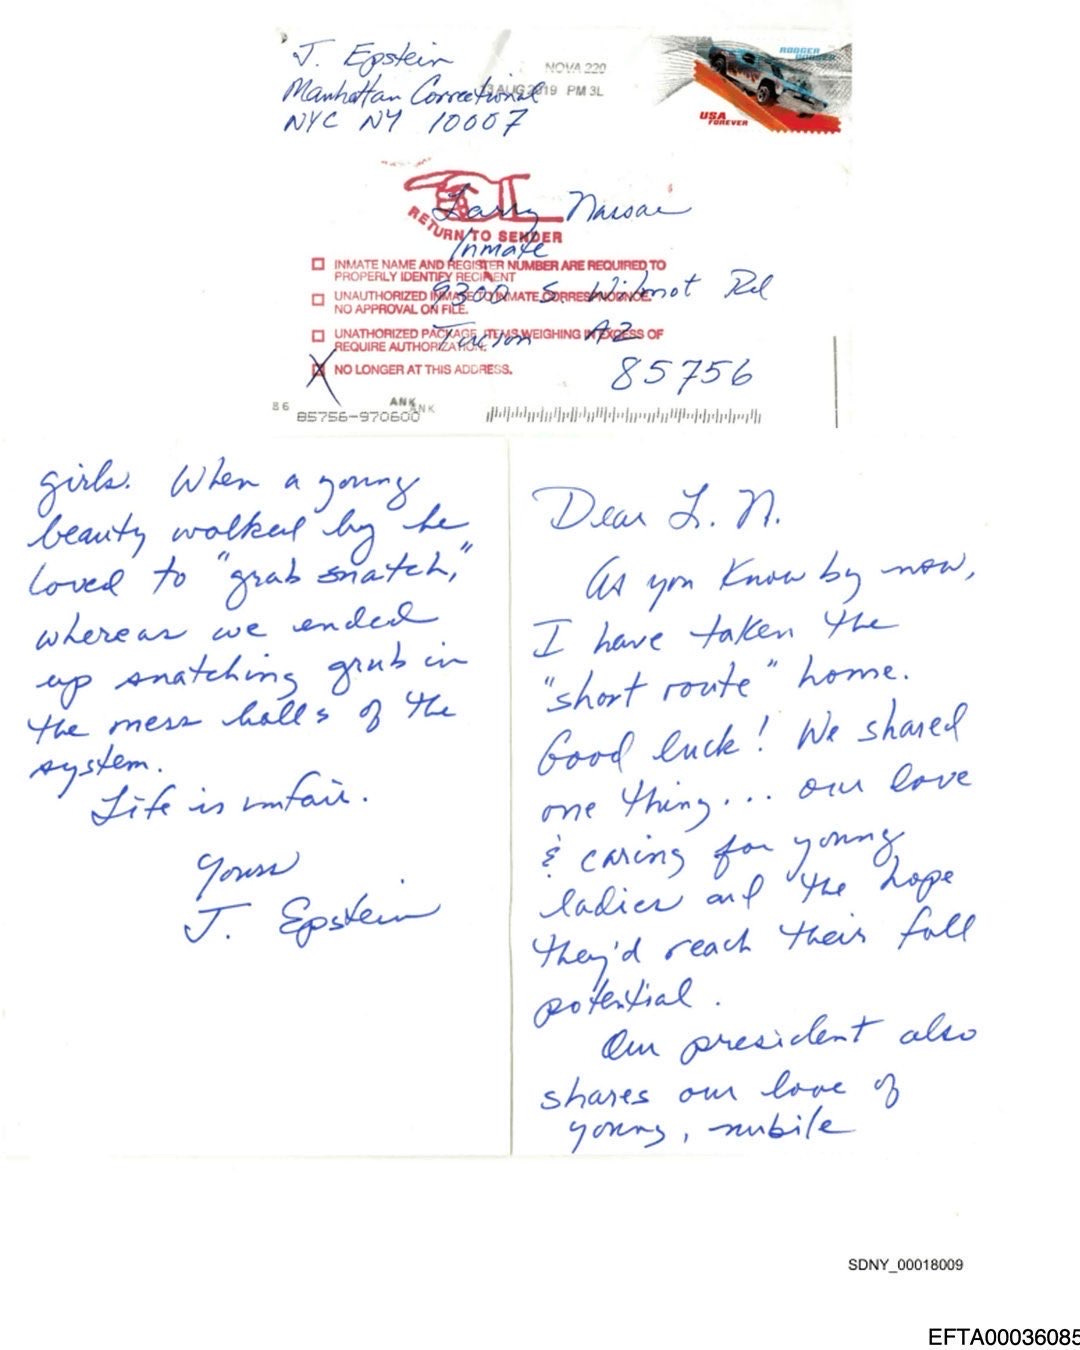 J. Epstein
Manhattan Correctional
NYC NY 10007
NOVA 220
AUG 2019 PM 3L
RODGER DODGER
USA
FOREVER
Larry Nassar
RETURN TO SENDER
Inmate
9300 S. Wilmot Rd
Tucson AZ
85756
INMATE NAME AND REGISTER NUMBER ARE REQUIRED TO
PROPERLY IDENTIFY RECIPIENT
UNAUTHORIZED INMATE TO INMATE CORRESPONDENCE.
NO APPROVAL ON FILE.
UNATHORIZED PACKAGE, ITEMS WEIGHING IN EXCESS OF
REQUIRE AUTHORIZATION.
X NO LONGER AT THIS ADDRESS.
86
ANK
ANK
85756-970600
Dear L. N.
As you know by now,
I have taken the
"short route" home.
Good luck! We shared
one thing... our love
& caring for young
ladies and the hope
they'd reach their full
potential.
Our president also
shares our love of
young, nubile
girls. When a young
beauty walked by he
loved to "grab snatch,"
whereas we ended
up snatching grub in
the mess halls of the
system.
Life is unfair.
Yours
J. Epstein
SDNY_00018009
EFTA00036085